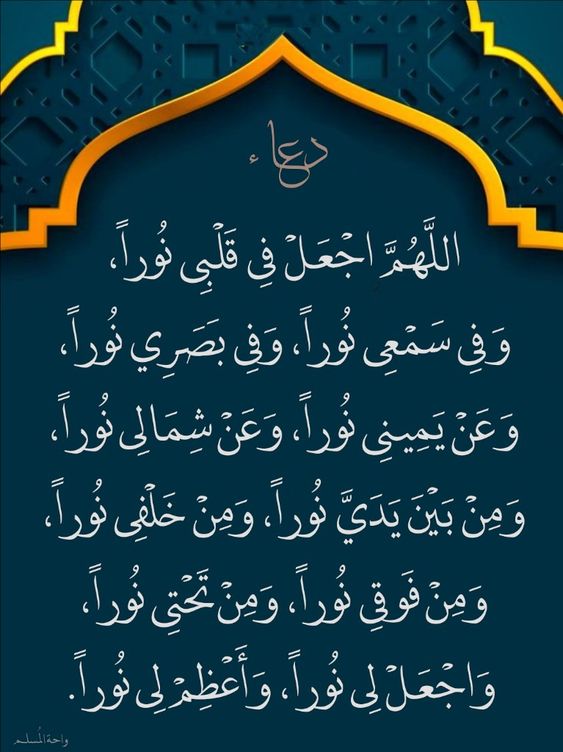 دعاء
اللَّهُمَّ اجْعَلْ فِي قَلْبِي نُوراً،
وَفِي سَمْعِي نُوراً، وَفِي بَصَرِي نُوراً،
وَعَنْ يَمِينِي نُوراً، وَعَنْ شِمَالِي نُوراً،
وَمِنْ بَيْنَ يَدَيَّ نُوراً، وَمِنْ خَلْفِي نُوراً،
وَمِنْ فَوقِي نُوراً، وَمِنْ تَحْتِي نُوراً،
وَاجْعَلْ لِي نُوراً، وَأَعْظِمْ لِي نُوراً.
واحة المُسلم